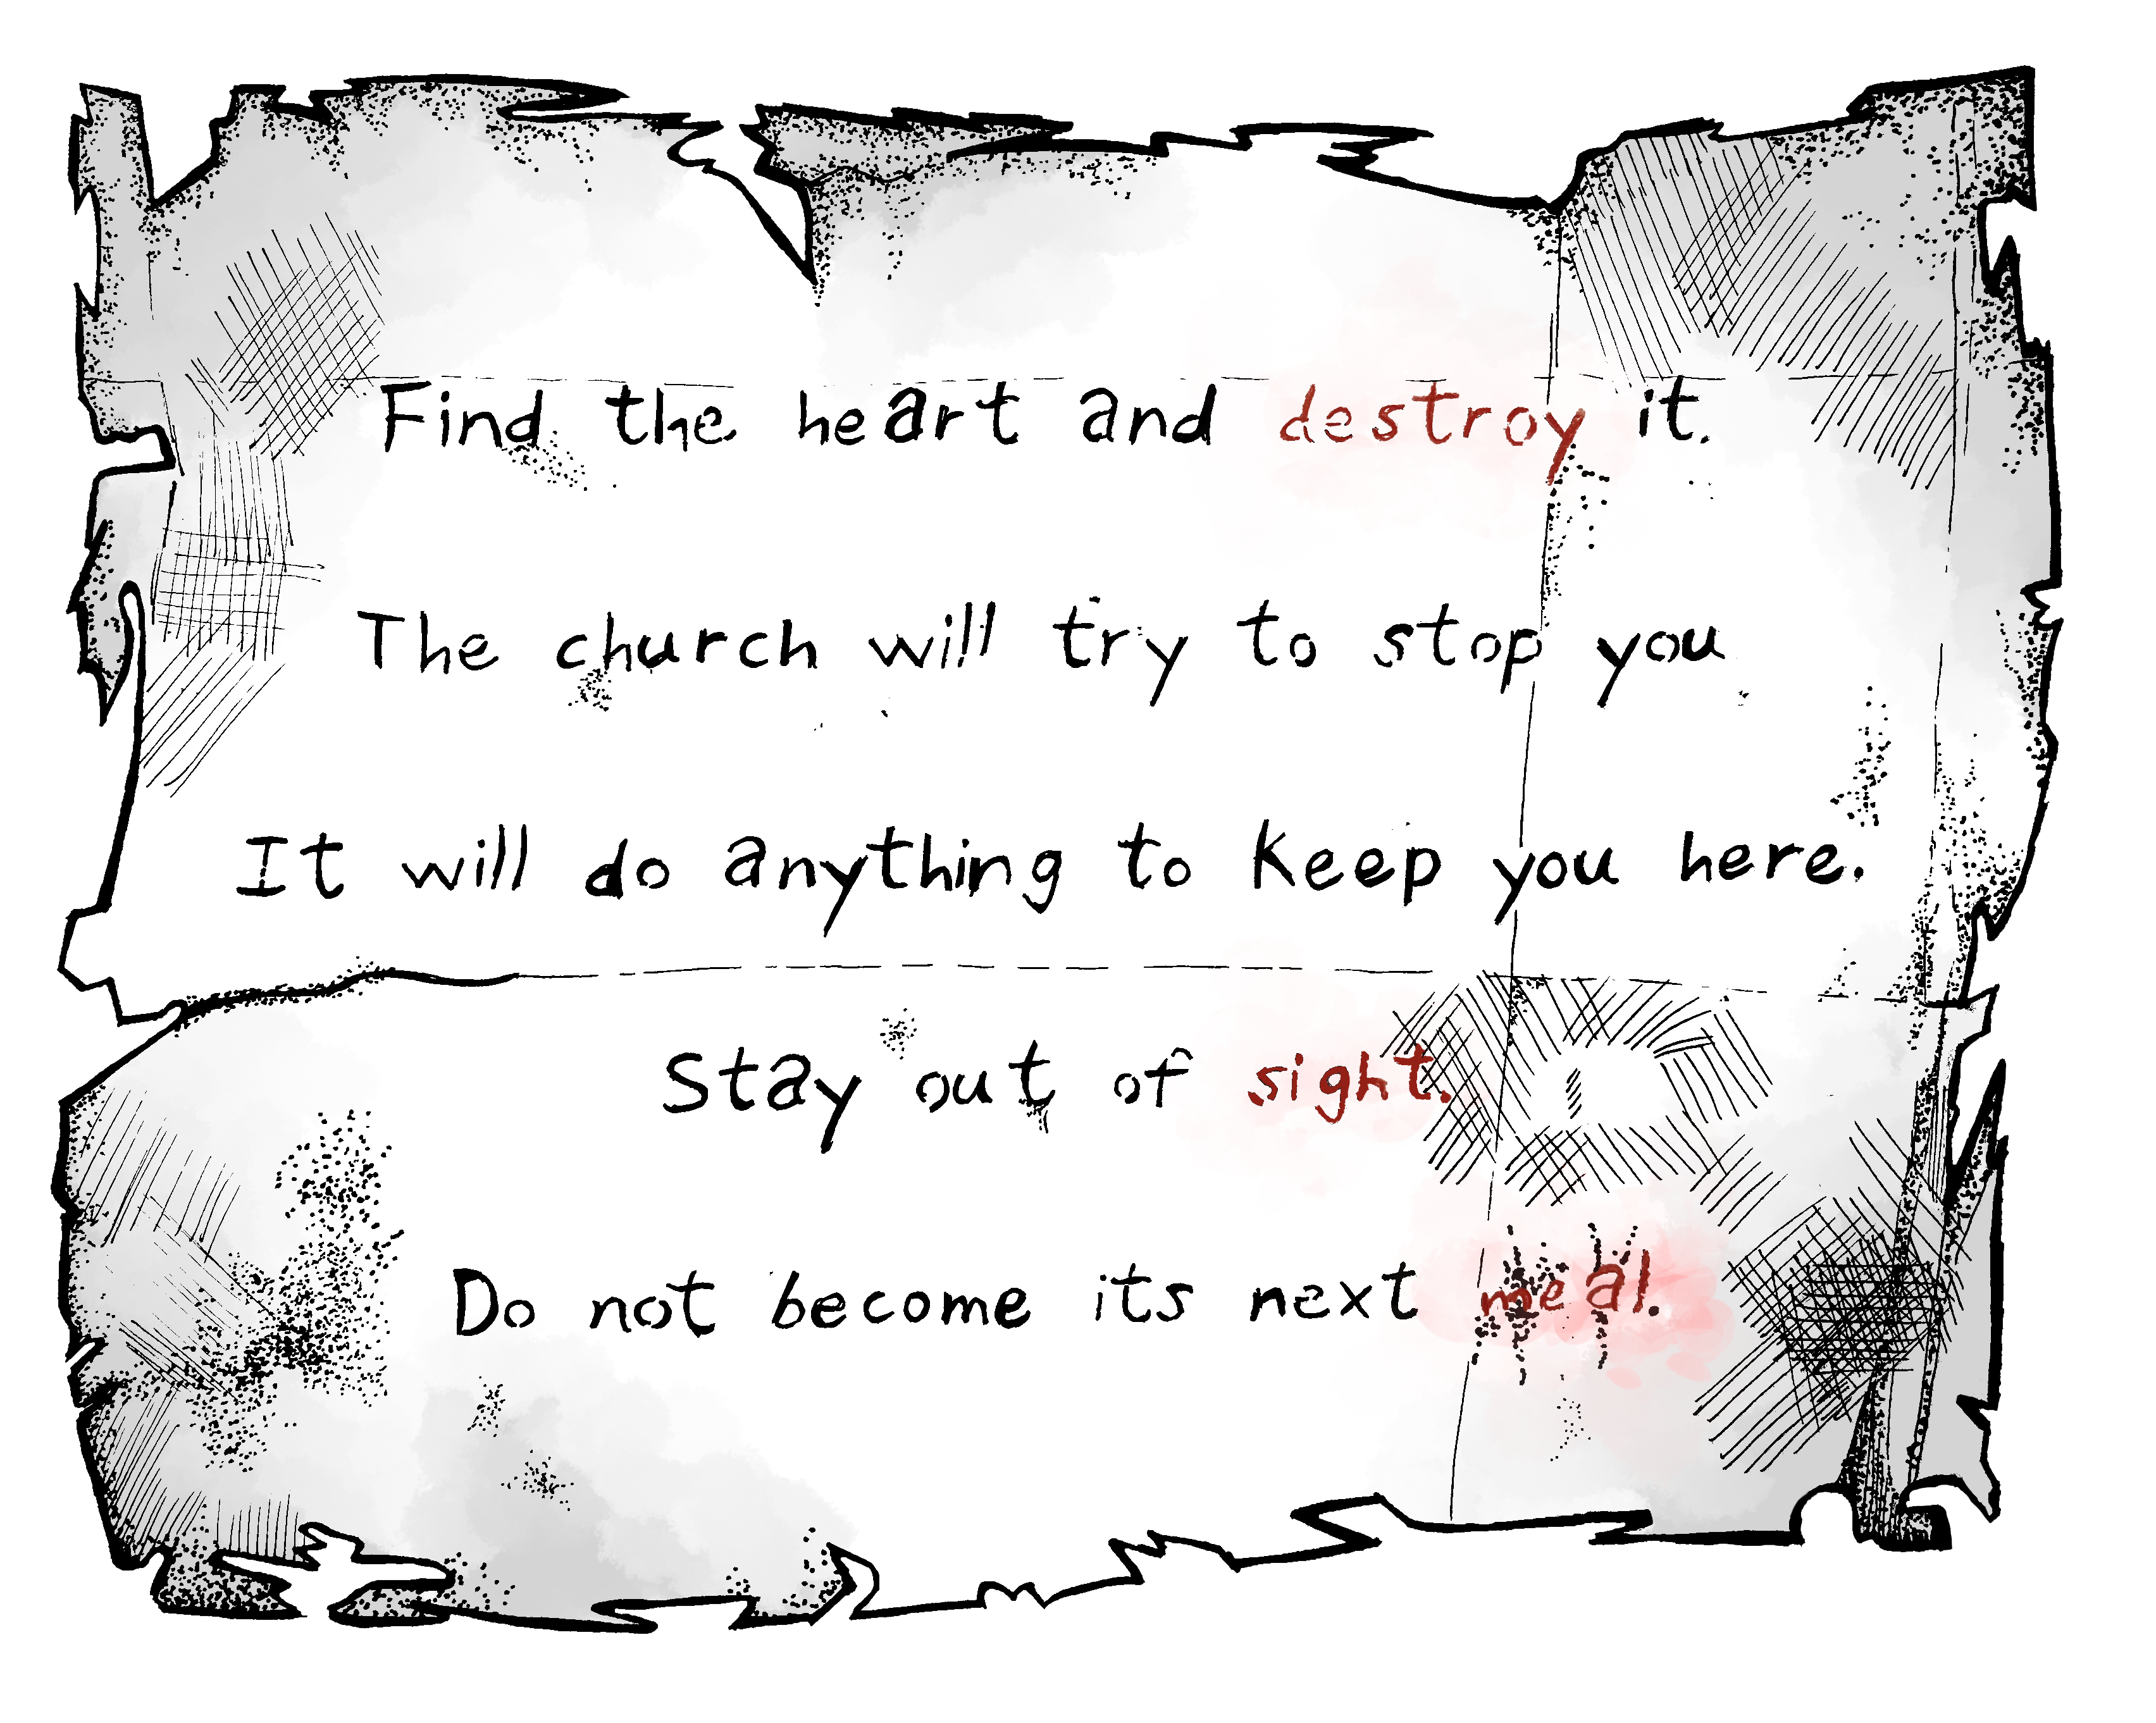 Find the heart and destroy it.
The church will try to stop you
It will do anything to keep you here.
Stay out of sight.
Do not become its next meal.